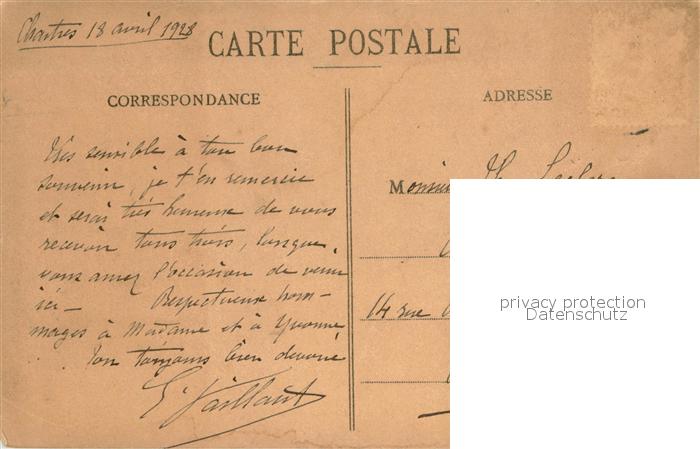 Chartres 18 avril 1928
CARTE POSTALE
CORRESPONDANCE
ADRESSE
Très sensible à ton bon
souvenir, je t'en remercie
et serai très heureux de vous
recevoir tous trois, lorsque
vous aurez l'occasion de venir
ici – Respectueux hom-
mages à Madame et à Yvonne
Ton toujours bien dévoué
G. Vaillant
Monsieur
14 rue
privacy protection
Datenschutz